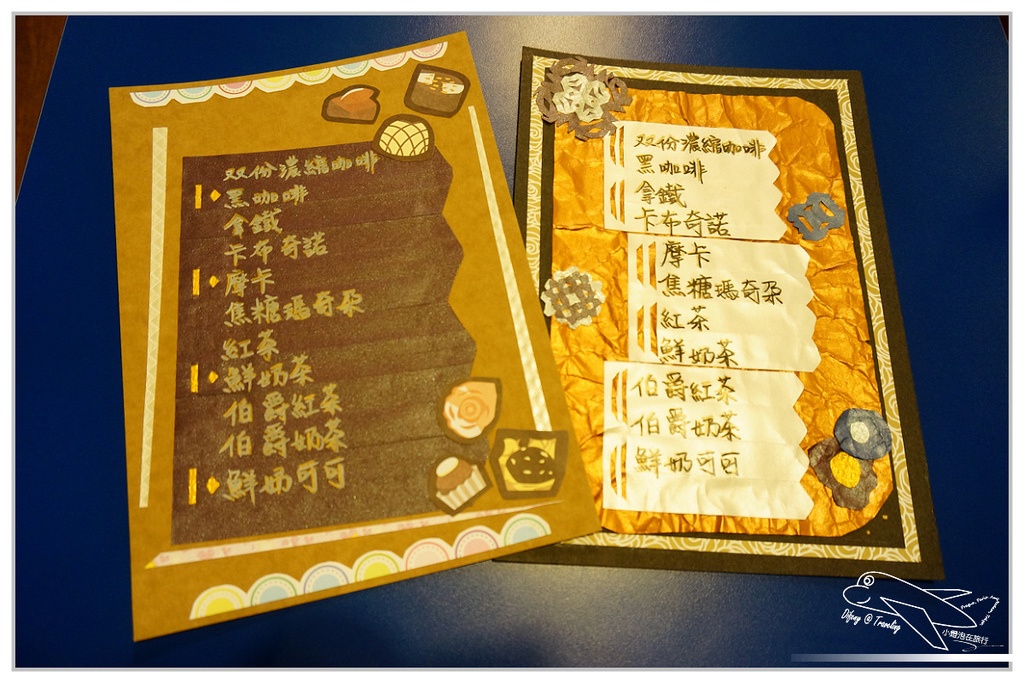 双份濃縮咖啡
黑咖啡
拿鐵
卡布奇諾
摩卡
焦糖瑪奇朵
紅茶
鮮奶茶
伯爵紅茶
伯爵奶茶
鮮奶可可
双份濃縮咖啡
黑咖啡
拿鐵
卡布奇諾
摩卡
焦糖瑪奇朵
紅茶
鮮奶茶
伯爵紅茶
伯爵奶茶
鮮奶可可
@ Traveling
小燈泡在旅行